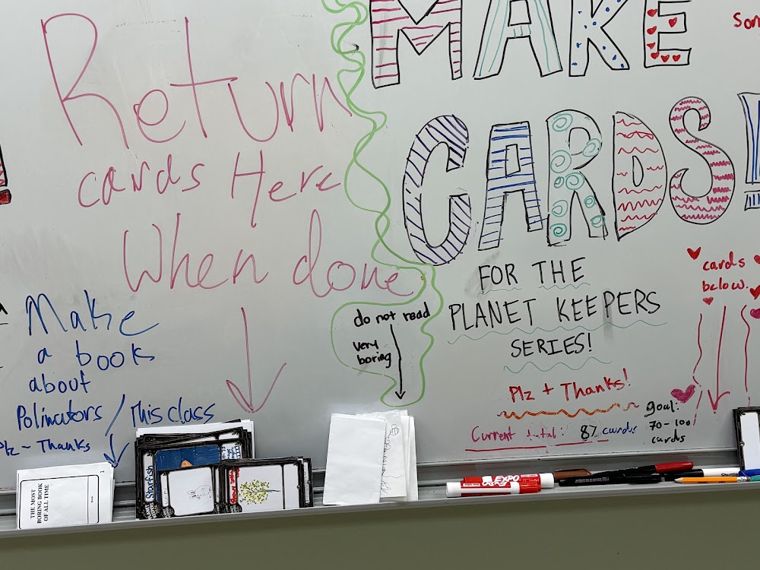 Return
cards Here
When done
Make
a book
about
Polinators / This class
Plz - Thanks
THE MOST
BORING BOOK
OF ALL TIME
do not read
very
boring
MAKE
CARDS!
FOR THE
PLANET KEEPERS
SERIES!
Plz + Thanks!
Current total: 87 cards
goal:
70-100
cards
cards
below.
EXPO